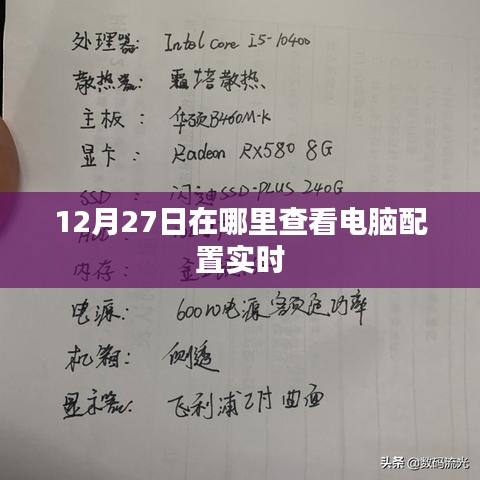 处理器: Intel Core i5-10400
散热器: 霜塔散热
主板: 华硕B460M-K
显卡: Radeon RX580 8G
SSD 闪迪SSD-PLUS 240G
12月27日在哪里查看电脑配
置实时
内存:
电源: 600W电源 额定功率
机箱: 侧透
显示器: 飞利浦 曲面
头条 @数码流光